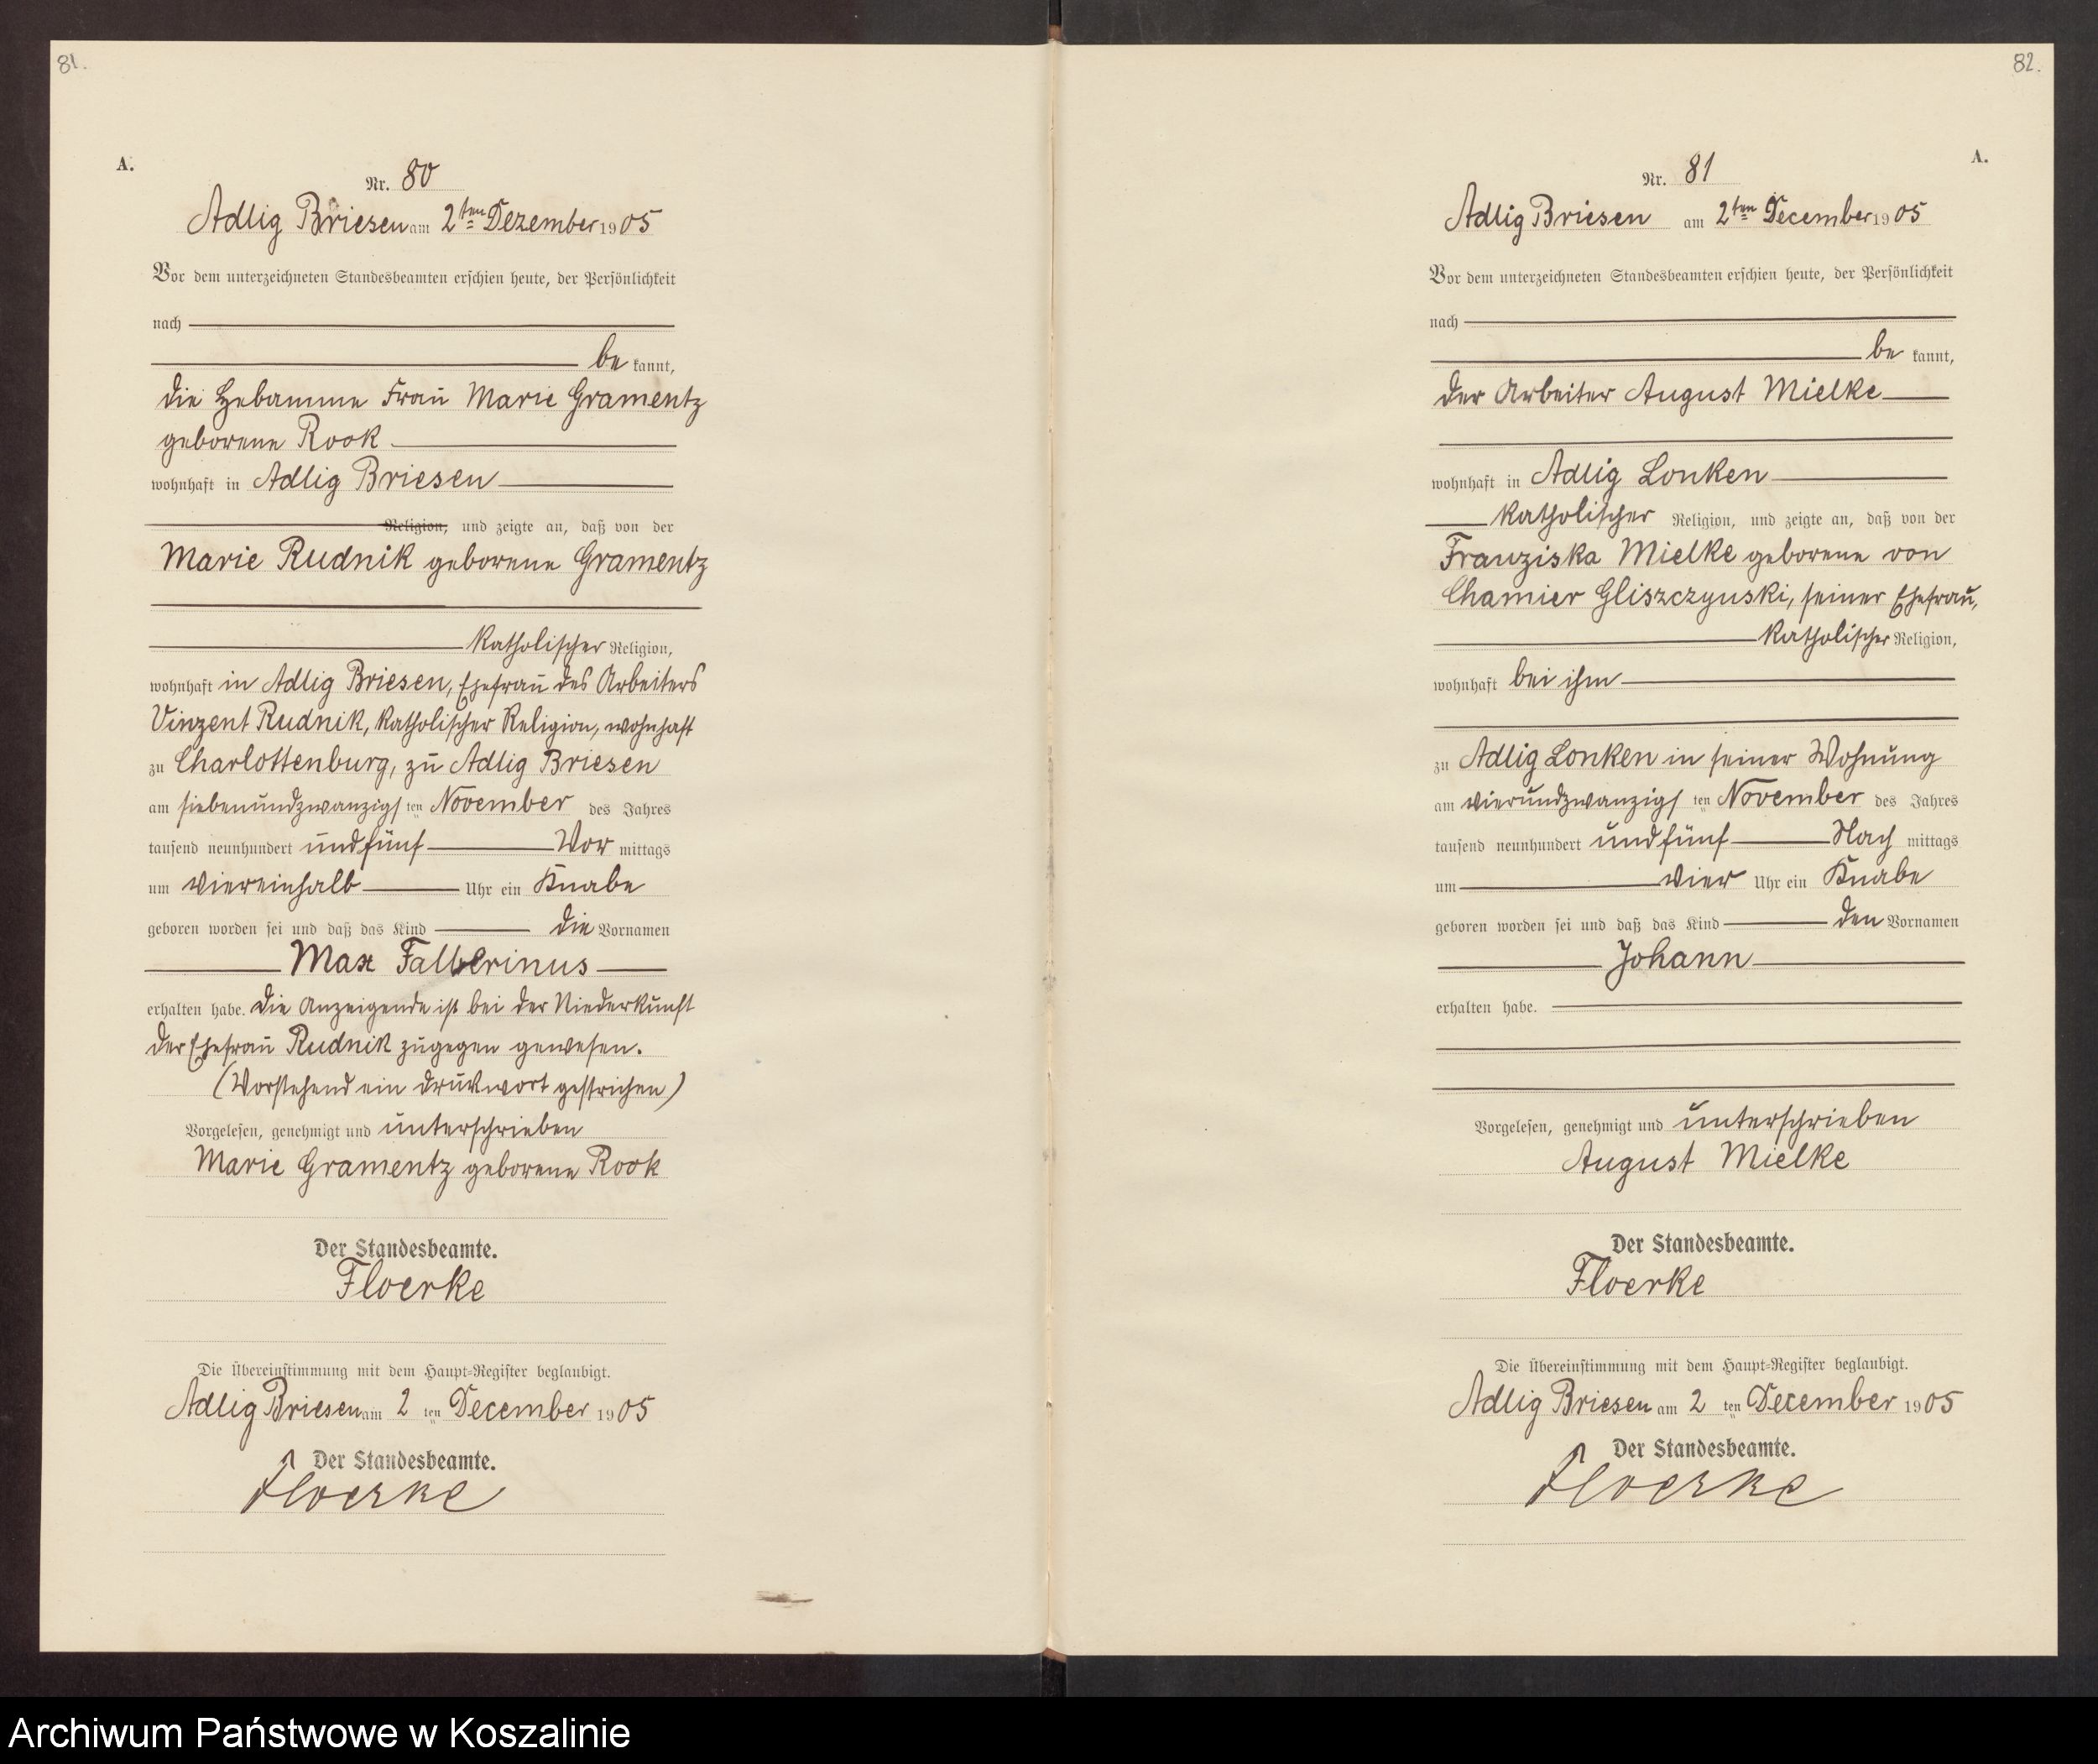 81.
A.
Nr. 80
Adlig Briesen am 2ten Dezember 1905
Vor dem unterzeichneten Standesbeamten erschien heute, der Persönlichkeit
nach
be kannt,
die Hebamme Frau Marie Gramentz
geborene Rook
wohnhaft in Adlig Briesen
Religion, und zeigte an, daß von der
Marie Rudnik geborene Gramentz
katholischer Religion,
wohnhaft in Adlig Briesen, Ehefrau des Arbeiters
Vinzent Rudnik, katholischer Religion, wohnhaft
zu Charlottenburg, zu Adlig Briesen
am siebenundzwanzigs ten November des Jahres
tausend neunhundert undfünf Vor mittags
um viereinhalb Uhr ein Knabe
geboren worden sei und daß das Kind die Vornamen
Max
erhalten habe. Die Anzeigende ist bei der Niederkunft
der Ehefrau Rudnik zugegen gewesen.
(Vorstehend ein Druckwort gestrichen)
Vorgelesen, genehmigt und unterschrieben
Marie Gramentz geborene Rook
Der Standesbeamte.
Floerke
Die Übereinstimmung mit dem Haupt-Register beglaubigt.
Adlig Briesen am 2 ten December 1905
Der Standesbeamte.
Floerke
82.
A.
Nr. 81
Adlig Briesen am 2ten December 1905
Vor dem unterzeichneten Standesbeamten erschien heute, der Persönlichkeit
nach
be kannt,
der Arbeiter August Mielke
wohnhaft in Adlig Lonken
katholischer Religion, und zeigte an, daß von der
Franziska Mielke geborene von
Chamier Gliszczynski, seiner Ehefrau,
katholischer Religion,
wohnhaft bei ihm
zu Adlig Lonken in seiner Wohnung
am vierundzwanzigs ten November des Jahres
tausend neunhundert undfünf Nach mittags
um vier Uhr ein Knabe
geboren worden sei und daß das Kind den Vornamen
Johann
erhalten habe.
Vorgelesen, genehmigt und unterschrieben
August Mielke
Der Standesbeamte.
Floerke
Die Übereinstimmung mit dem Haupt-Register beglaubigt.
Adlig Briesen am 2 ten December 1905
Der Standesbeamte.
Floerke
Archiwum Państwowe w Koszalinie